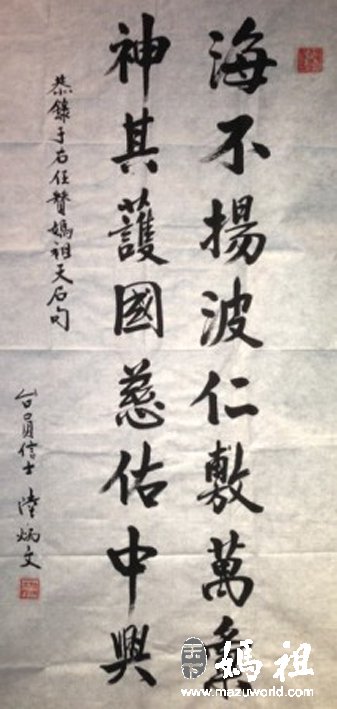 海不揚波仁敷萬
神其護國慈佑中興
恭錄于右任贊媽祖天后句
台員信士 陸炳文
天下媽祖
www.mazuworld.com